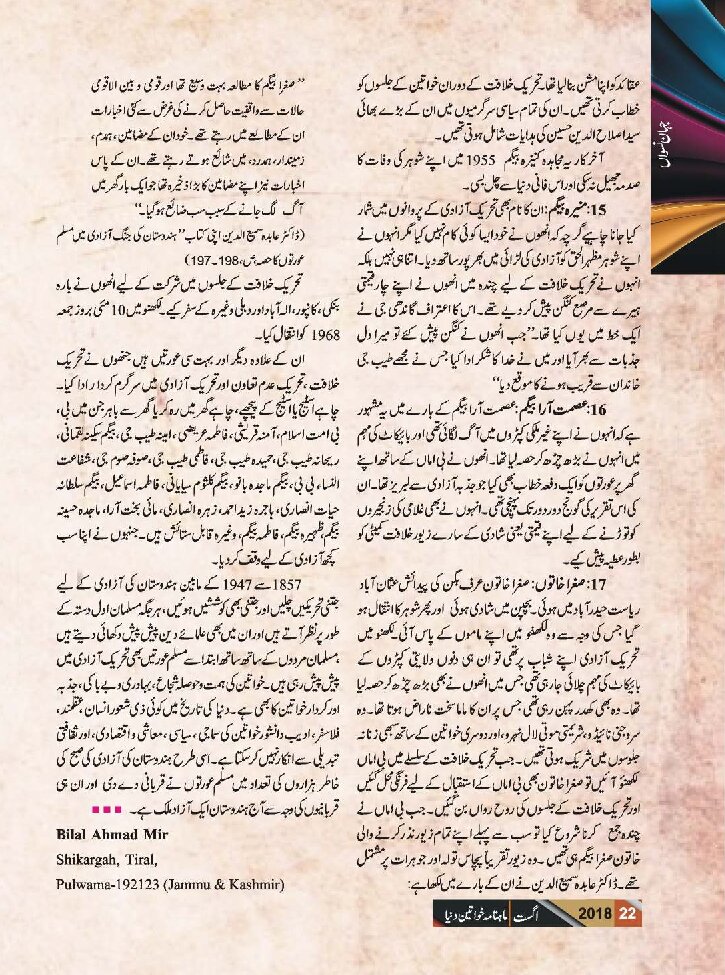 جہان نسواں
عقائد کو اپنا مشن بنا لیا تھا۔ تحریک خلافت کے دوران خواتین کے جلسوں کو
خطاب کرتی تھیں۔ ان کی تمام سیاسی سرگرمیوں میں ان کے بڑے بھائی
سید اصلاح الدین حسین کی ہدایات شامل ہوتی تھیں۔
آخر کار یہ مجاہدہ کنیزہ بیگم 1955 میں اپنے شوہر کی وفات کا
صدمہ جھیل نہ سکی اور اس فانی دنیا سے چل بسی۔
15: منیرہ بیگم: ان کا نام بھی تحریک آزادی کے پروانوں میں شمار
کیا جانا چاہیے گرچہ کہ انھوں نے خود ایسا کوئی کام نہیں کیا مگر انہوں نے
اپنے شوہر مظہر الحق کو آزادی کی لڑائی میں بھر پور ساتھ دیا۔ اتنا ہی نہیں بلکہ
انہوں نے تحریک خلافت کے لیے چندہ میں انھوں نے اپنے چار قیمتی
ہیرے سے مرصع کنگن پیش کر دیے تھے۔ اس کا اعتراف گاندھی جی نے
ایک خط میں یوں کیا تھا۔ ”جب انھوں نے کنگن پیش کئے تو میرا دل
جذبات سے بھر آیا اور میں نے خدا کا شکر ادا کیا جس نے مجھے طیب جی
خاندان سے قریب ہونے کا موقع دیا“
16: عصمت آرا بیگم: عصمت آرا بیگم کے بارے میں یہ مشہور
ہے کہ انہوں نے اپنے غیر ملکی کپڑوں میں آگ لگائی تھی اور بائیکاٹ کی مہم
میں انہوں نے بڑھ چڑھ کر حصہ لیا تھا۔ انھوں نے بی اماں کے ساتھ اپنے
گھر پر عورتوں کو ایک دفعہ خطاب بھی کیا جو جذبہ آزادی سے لبریز تھا۔ ان
کی اس تقریر کی گونج دور دور تک پہنچی تھی۔ انہوں نے بھی غلامی کی زنجیروں
کو توڑنے کے لیے اپنے قیمتی یعنی شادی کے سارے زیور خلافت کمیٹی کو
بطور عطیہ پیش کیے۔
17: صغرا خاتون: صغرا خاتون عرف مگن کی پیدائش عثمان آباد
ریاست حیدرآباد میں ہوئی۔ بچپن میں شادی ہوئی اور پھر شوہر کا انتقال ہو
گیا جس کی وجہ سے وہ لکھنؤ میں اپنے ماموں کے پاس آئی۔ لکھنو میں
تحریک آزادی اپنے شباب پر تھی تو ان ہی دنوں ولایتی کپڑوں کے
بائیکاٹ کی مہم چلائی جا رہی تھی جس میں انھوں نے بھی بڑھ چڑھ کر حصہ لیا
تھا۔ وہ بھی کھدر پہن رہی تھی جس پر ان کا ماما سخت ناراض ہوتا تھا۔ وہ
سروجنی نائیڈو، شریمتی موتی لال نہرو، اور دوسری خواتین کے ساتھ بھی زنانہ
جلوسوں میں شریک ہوتی تھیں۔ جب تحریک خلافت کے سلسلے میں بی اماں
لکھنؤ آئیں تو صغرا خاتون بھی بی اماں کے استقبال کے لیے فرنگی محل گئیں
اور تحریک خلافت کے جلسوں کی روح رواں بن گئیں۔ جب بی اماں نے
چندہ جمع کرنا شروع کیا تو سب سے پہلے اپنے تمام زیور نذر کرنے والی
خاتون صغرا بیگم ہی تھیں۔ وہ زیور تقریباً پچاس تولہ اور جوہرات پر مشتمل
تھے۔ ڈاکٹر عابدہ سمیع الدین نے ان کے بارے میں لکھا ہے:
”صغرا بیگم کا مطالعہ بہت وسیع تھا اور قومی و بین الاقومی
حالات سے واقفیت حاصل کرنے کی غرض سے کئی اخبارات
ان کے مطالعے میں رہتے تھے۔ خود ان کے مضامین، ہمدم،
زمیندار، ہمدرد، میں شائع ہوتے رہتے تھے۔ ان کے پاس
اخبارات نیز اپنے مضامین کا بڑا ذخیرہ تھا جو ایک بار گھر میں
آگ لگ جانے کے سبب سب ضائع ہو گیا۔“
(ڈاکٹر عابدہ سمیع الدین اپنی کتاب ”ہندوستان کی جنگ آزادی میں مسلم
عورتوں کا حصہ، ص، 198-197)
تحریک خلافت کے جلسوں میں شرکت کے لیے انھوں نے بارہ
بنکی، کانپور، الہ آباد اور دہلی وغیرہ کے سفر کیے۔ لکھنو میں 10 مئی بروز جمعہ
1968 کو انتقال کیا۔
ان کے علاوہ دیگر اور بہت سی عورتیں ہیں جنھوں نے تحریک
خلافت، تحریک عدم تعاون اور تحریک آزادی میں سرگرم کردار ادا کیا۔
چاہے اسٹیج یا اسٹیج کے پیچھے، چاہے گھر میں رہ کر یا گھر سے باہر جن میں بی،
بی امت اسلام، آمنہ قریشی، فاطمہ عریضی، امینہ طیب جی، بیگم سکینہ لقمانی،
ریحانہ طیب جی، حمیدہ طیب جی، فاطمی طیب جی، صوفہ صوم جی، شفاعت
النساء، بی بی، بیگم ماجدہ بانو، بیگم کلثوم سایانی، فاطمہ اسماعیل، بیگم سلطانہ
حیات انصاری، ہاجرہ زبیدہ احمد، زہرہ انصاری، مائی بخت آرا، ماجدہ حسینہ
بیگم، ظہیرہ بیگم، فاطمہ بیگم، وغیرہ قابل ستائش ہیں۔ جنہوں نے اپنا سب
کچھ آزادی کے لیے وقف کر دیا۔
1857 سے 1947 کے مابین ہندوستان کی آزادی کے لیے
جتنی تحریکیں چلیں اور جتنی بھی کوششیں ہوئیں، ہر جگہ مسلمان اول دستہ کے
طور پر نظر آتے ہیں اور ان میں بھی علمائے دین پیش پیش دکھائی دیتے ہیں
،مسلمان مردوں کے ساتھ ساتھ ابتدا سے مسلم عورتیں بھی تحریک آزادی میں
پیش پیش رہی ہیں۔ خواتین کی ہمت و حوصلہ شجاع، بہادری و بے باکی، جذبہ
اور کردار خواتین کا بھی ہے۔ دنیا کی تاریخ میں کوئی ذی شعور انسان، عقلمند،
فلاسفر، ادیب و دانشور خواتین کی سماجی، سیاسی، معاشی و اقتصادی، اور ثقافتی
تبدیلی سے انکار نہیں کر سکتا ہے۔ اسی طرح ہندوستان کی آزادی کی صبح کی
خاطر ہزاروں کی تعداد میں مسلم عورتوں نے قربانی دے دی اور ان ہی
قربانیوں کی وجہ سے آج ہندوستان ایک آزاد ملک ہے۔
Bilal Ahmad Mir
Shikargah, Tiral,
Pulwama-192123 (Jammu & Kashmir)
ماہنامہ خواتین دنیا | اگست 2018 22